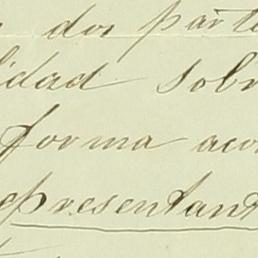 dos parte
lidad sobr
forma aco
epresentant